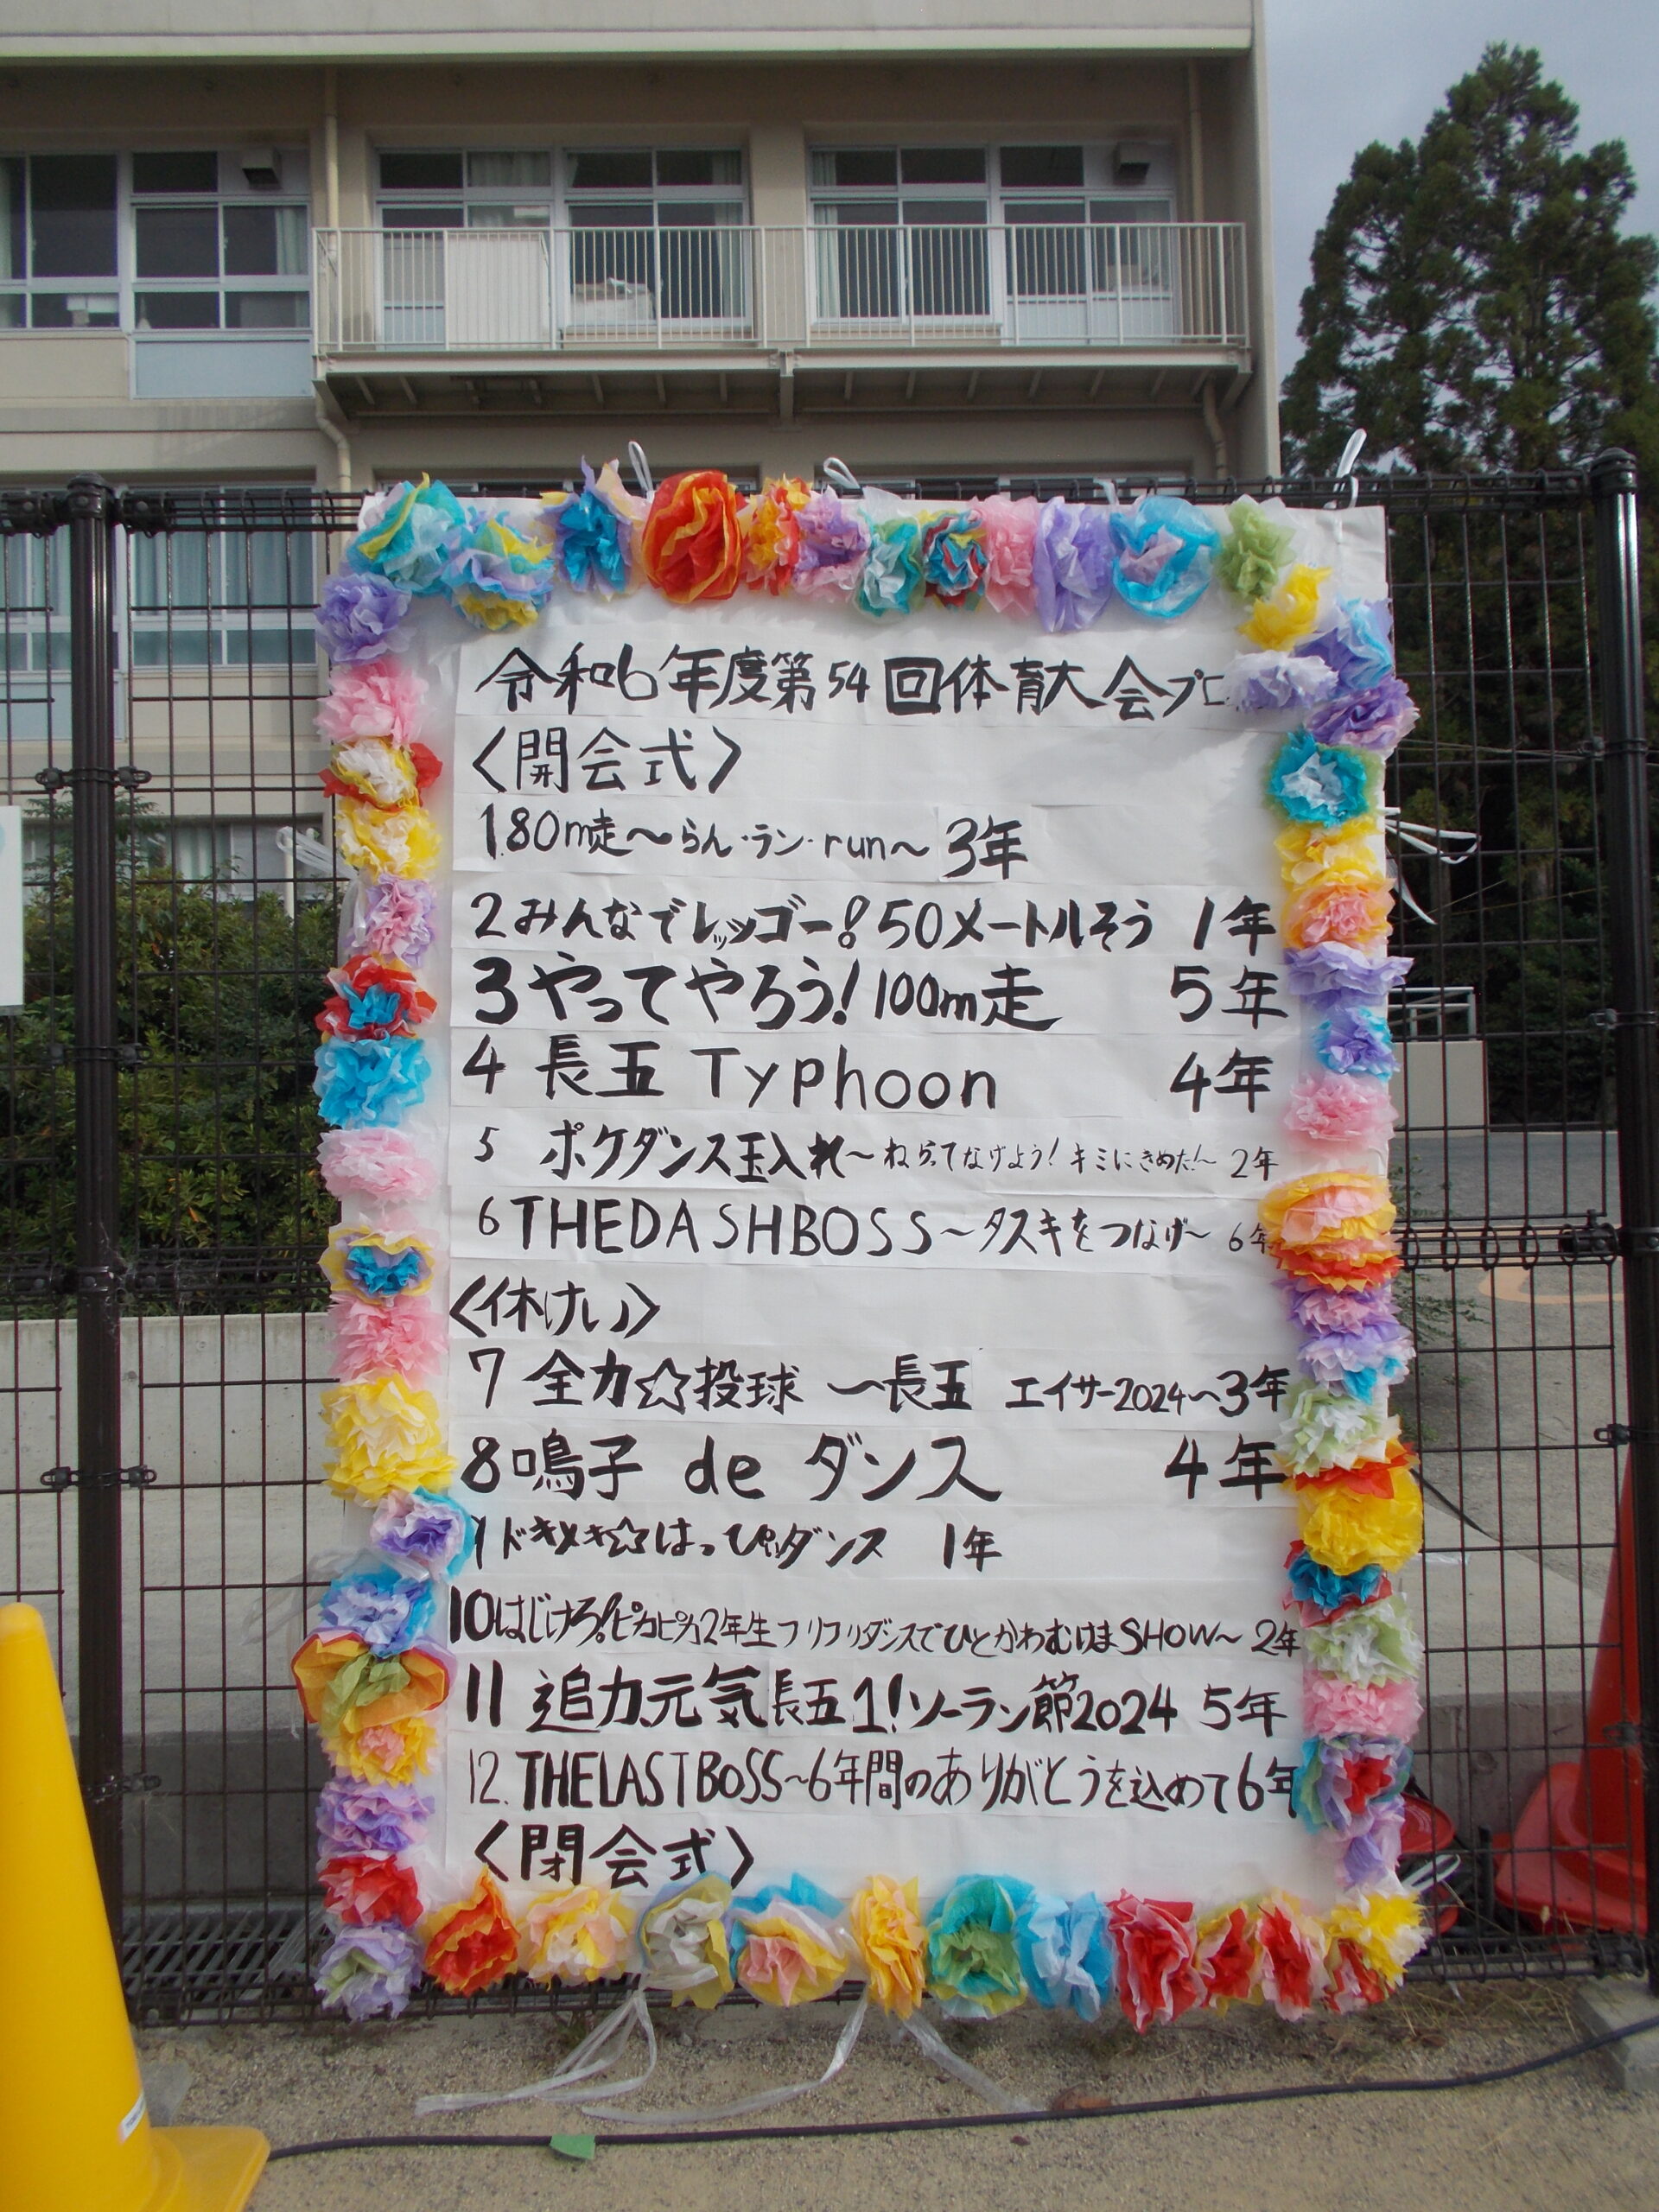 令和6年度第54回体育大会プロ
〈開会式〉
1.80m走〜らん・ラン・run〜 3年
2みんなでレッツゴー!50メートルそう 1年
3やってやろう!100m走 5年
4 長五 Typhoon 4年
5 ポケダンス玉入れ〜ねらってなげよう!キミにきめた!〜 2年
6 THEDASHBOSS〜タスキをつなげ〜 6年
〈休けい〉
7 全力☆投球 〜長五 エイサー2024〜3年
8 鳴子 de ダンス 4年
9ドキメキ☆はっぴぃダンス 1年
10はじけろ!ピカピカ2年生フリフリダンスでひとかわむけまSHOW〜 2年
11 迫力、元気長五1!ソーラン節2024 5年
12.THELASTBOSS〜6年間のありがとうを込めて6年
〈閉会式〉